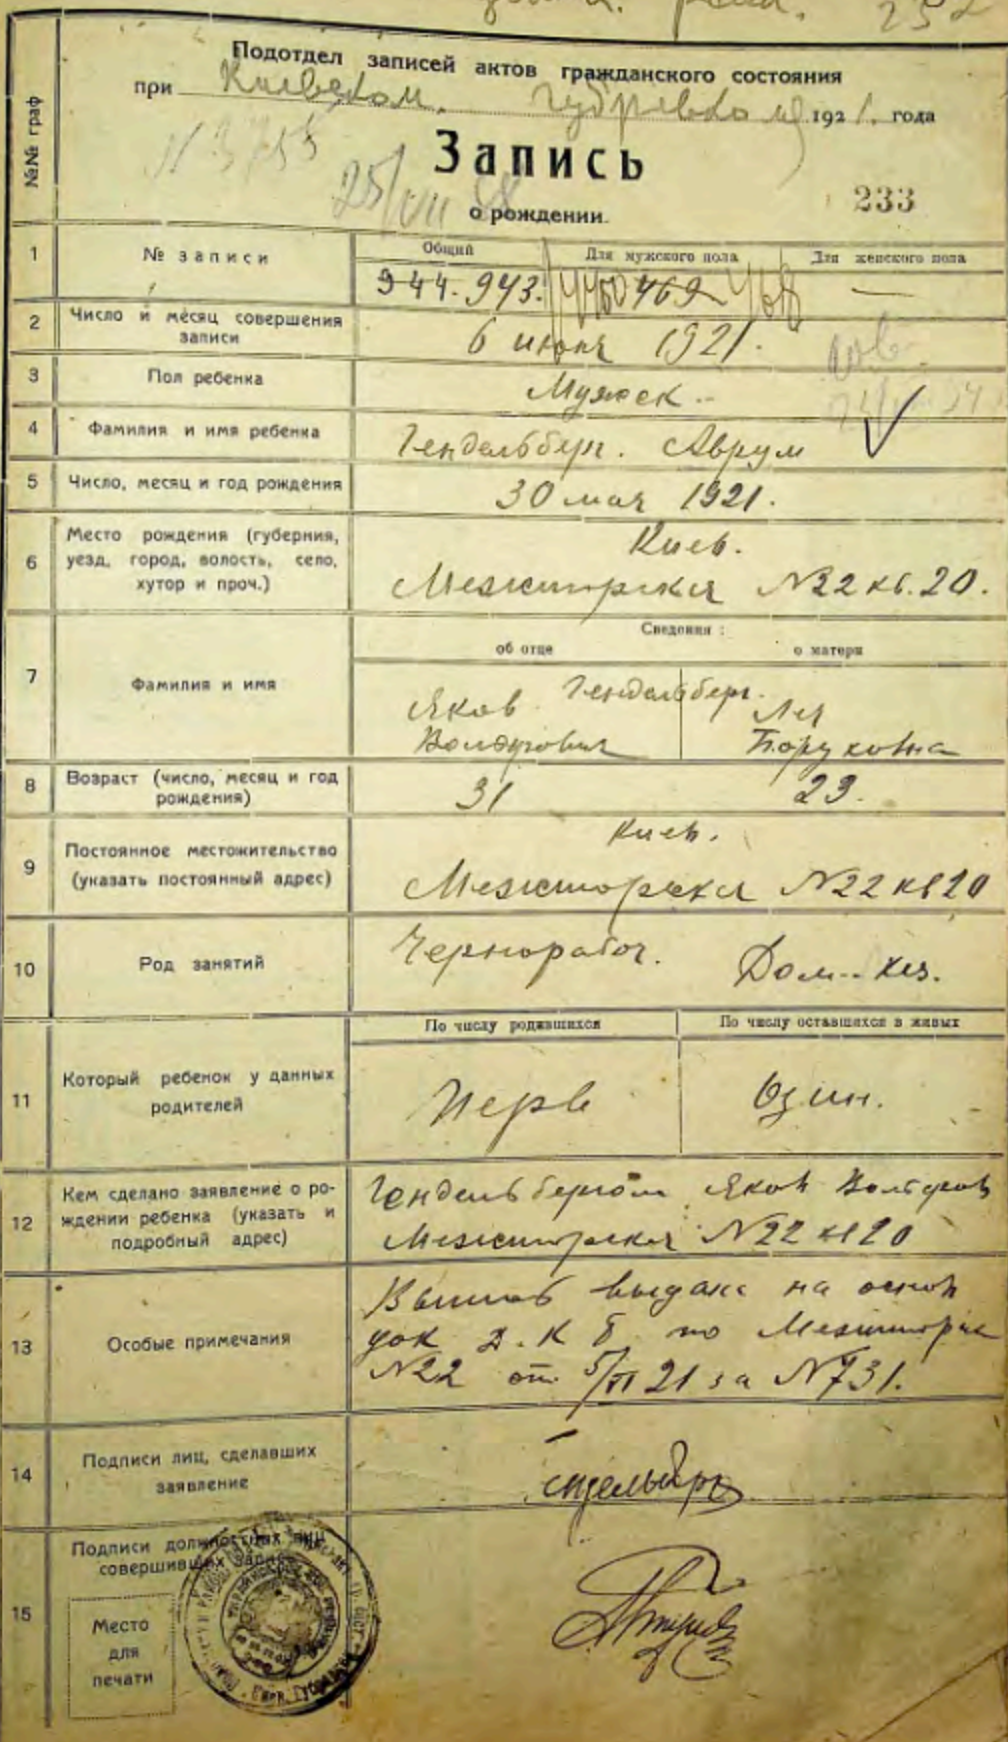 Подотдел записей актов гражданского состояния
при Киевском. Губревкоме 1921. года
№№ граф
N 3755
Запись
25/VIII
о рождении.
233
1 № записи
Общий Для мужского пола Для женского пола
944. 943. 469 468 —
2 Число и месяц совершения
записи
6 июня 1921.
3 Пол ребенка Мужск.
4 Фамилия и имя ребенка Гендельберг. Аврум
5 Число, месяц и год рождения 30 мая 1921.
6 Место рождения (губерния,
уезд, город, волость, село,
хутор и проч.)
Киев.
Межигорская N22 кв. 20.
Сведения:
об отце о матери
7 Фамилия и имя
Гендельберг.
Яков Лея
Боруховна
8 Возраст (число, месяц и год
рождения)
31 23.
9 Постоянное местожительство
(указать постоянный адрес)
Киев.
Межигорская N22 кв 20
10 Род занятий Чернорабоч. Дом. хоз.
По числу родившихся По числу оставшихся в живых
11 Который ребенок у данных
родителей
Перв Один.
12 Кем сделано заявление о ро-
ждении ребенка (указать и
подробный адрес)
Гендельбергом Яков
Межигорская N22 кв 20
13 Особые примечания
выдана на основ
док Д. К Б по Межигорск
N22 от 5/VI 21 за N731.
14 Подписи лиц, сделавших
заявление
15 Подписи должностных лиц,
совершивших запись
Место
для
печати